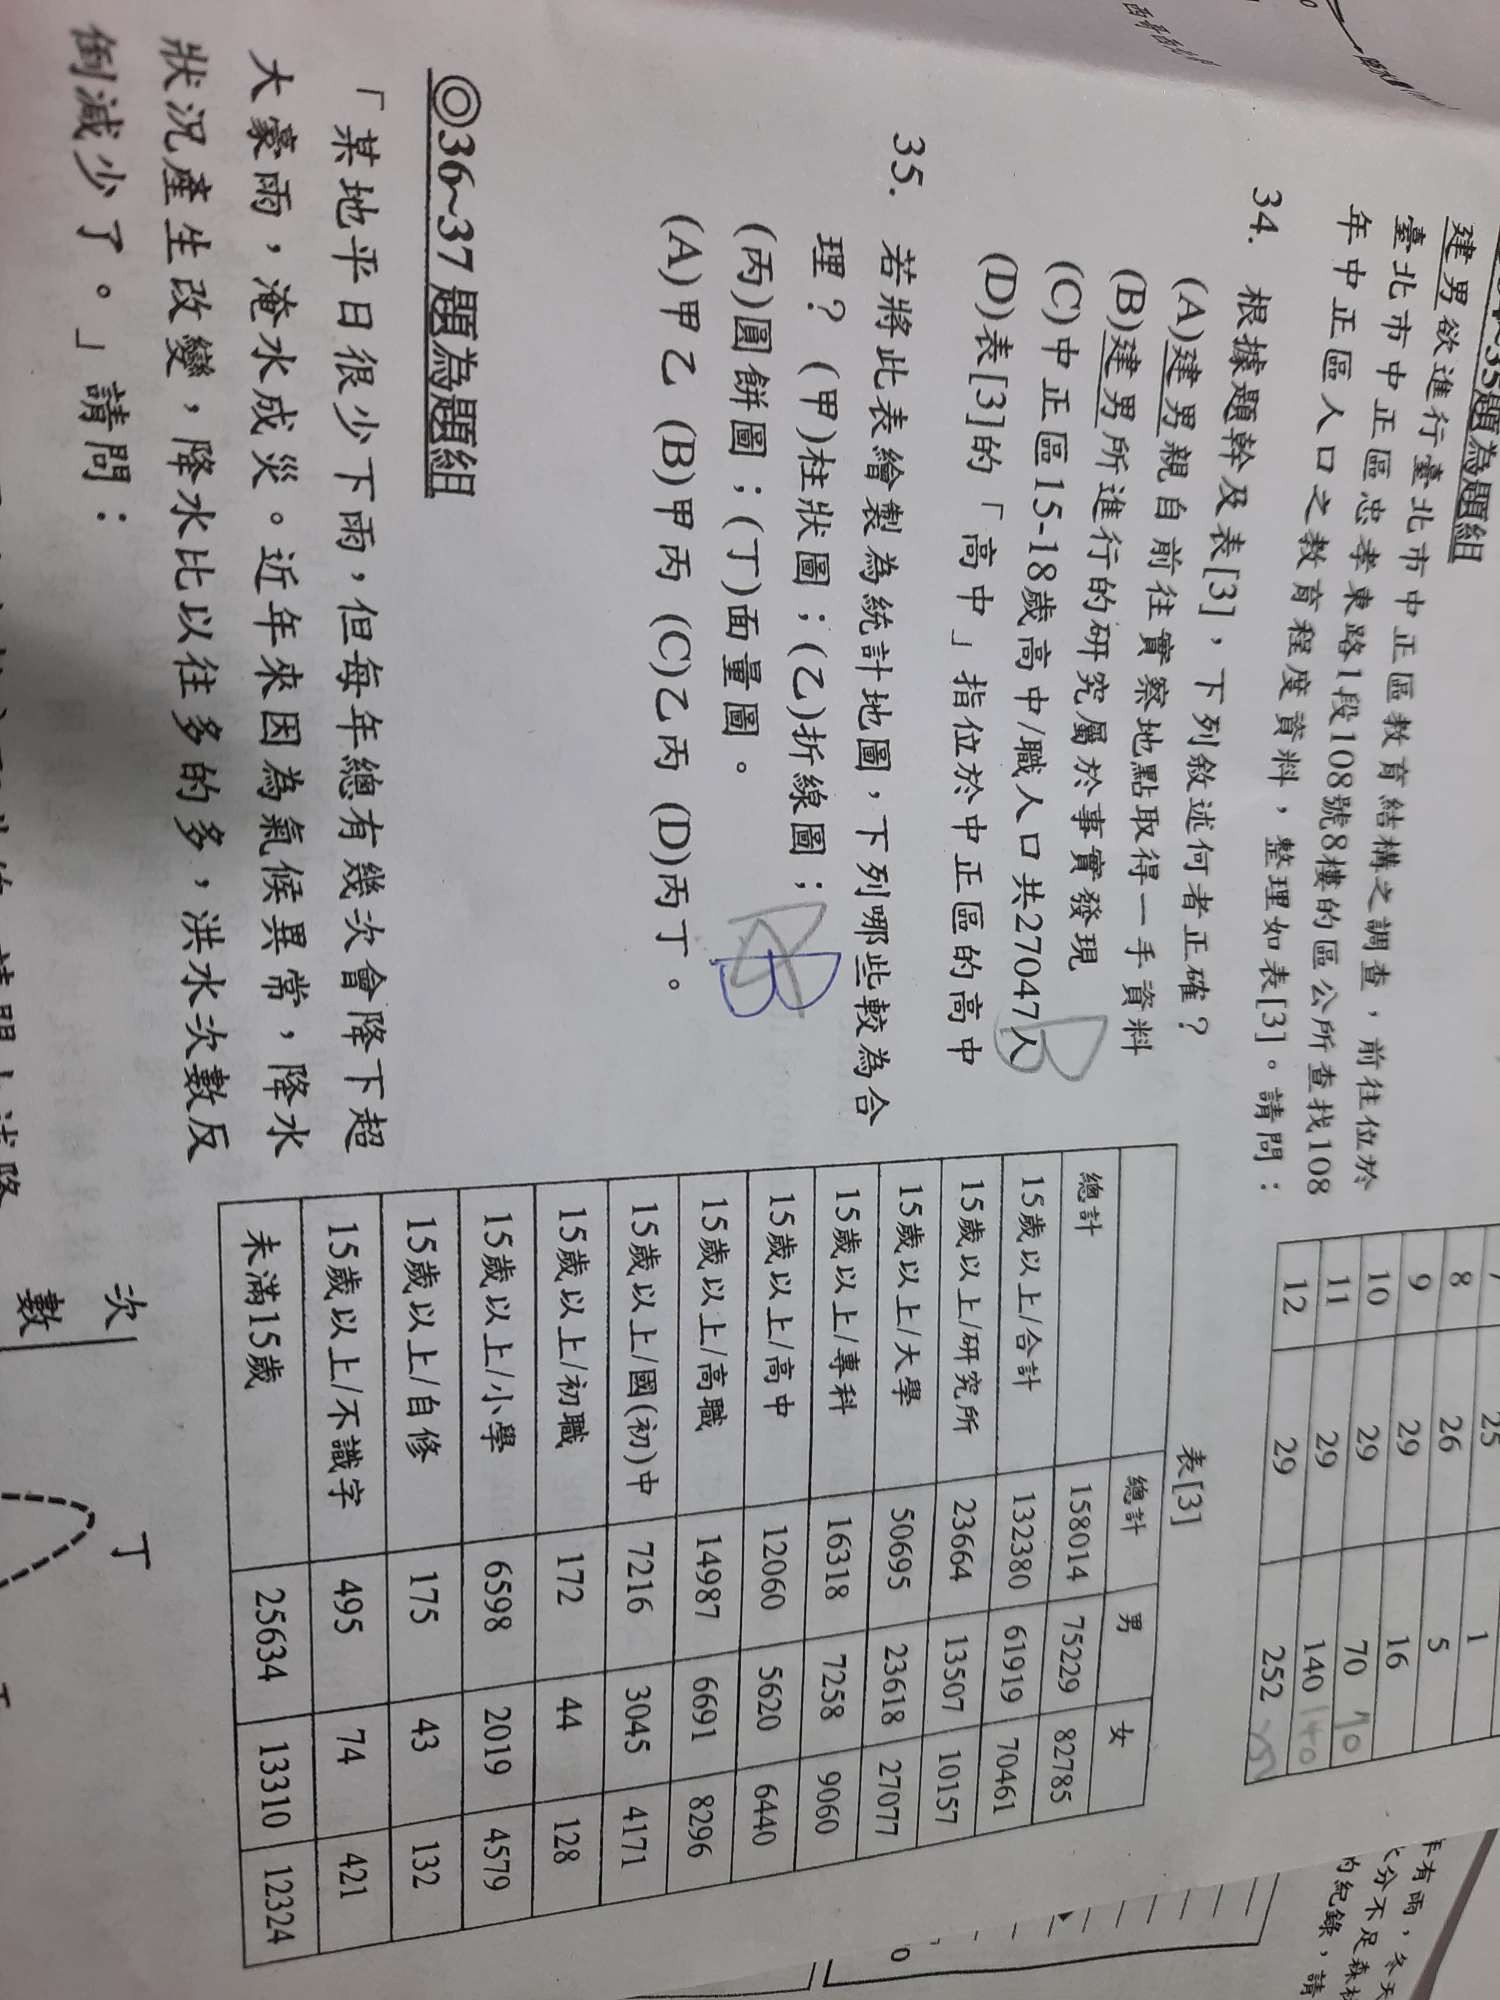 35題為題組
建男欲進行臺北市中正區教育結構之調查，前往位於
臺北市中正區忠孝東路1段108號8樓的區公所查找108
年中正區人口之教育程度資料，整理如表[3]。請問：
34. 根據題幹及表[3]，下列敘述何者正確？
(A)建男親自前往實察地點取得一手資料
(B)建男所進行的研究屬於事實發現
(C)中正區15-18歲高中/職人口共27047人
(D)表[3]的「高中」指位於中正區的高中
35. 若將此表繪製為統計地圖，下列哪些較為合
理？(甲)柱狀圖；(乙)折線圖；
(丙)圓餅圖；(丁)面量圖。
(A)甲乙 (B)甲丙 (C)乙丙 (D)丙丁。
B
◎36~37題為題組
「某地平日很少下雨，但每年總有幾次會降下超
大豪雨，淹水成災。近年來因為氣候異常，降水
狀況產生改變，降水比以往多的多，洪水次數反
倒減少了。」請問：
25 1
8 26 5
9 29 16
10 29 70 70
11 29 140 140
12 29 252
表[3]
總計 男 女
總計 158014 75229 82785
15歲以上/合計 132380 61919 70461
15歲以上/研究所 23664 13507 10157
15歲以上/大學 50695 23618 27077
15歲以上/專科 16318 7258 9060
15歲以上/高中 12060 5620 6440
15歲以上/高職 14987 6691 8296
15歲以上/國(初)中 7216 3045 4171
15歲以上/初職 172 44 128
15歲以上/小學 6598 2019 4579
15歲以上/自修 175 43 132
15歲以上/不識字 495 74 421
未滿15歲 25634 13310 12324
次
數
丁
年有雨，冬天
分不足森林
的紀錄，請
0